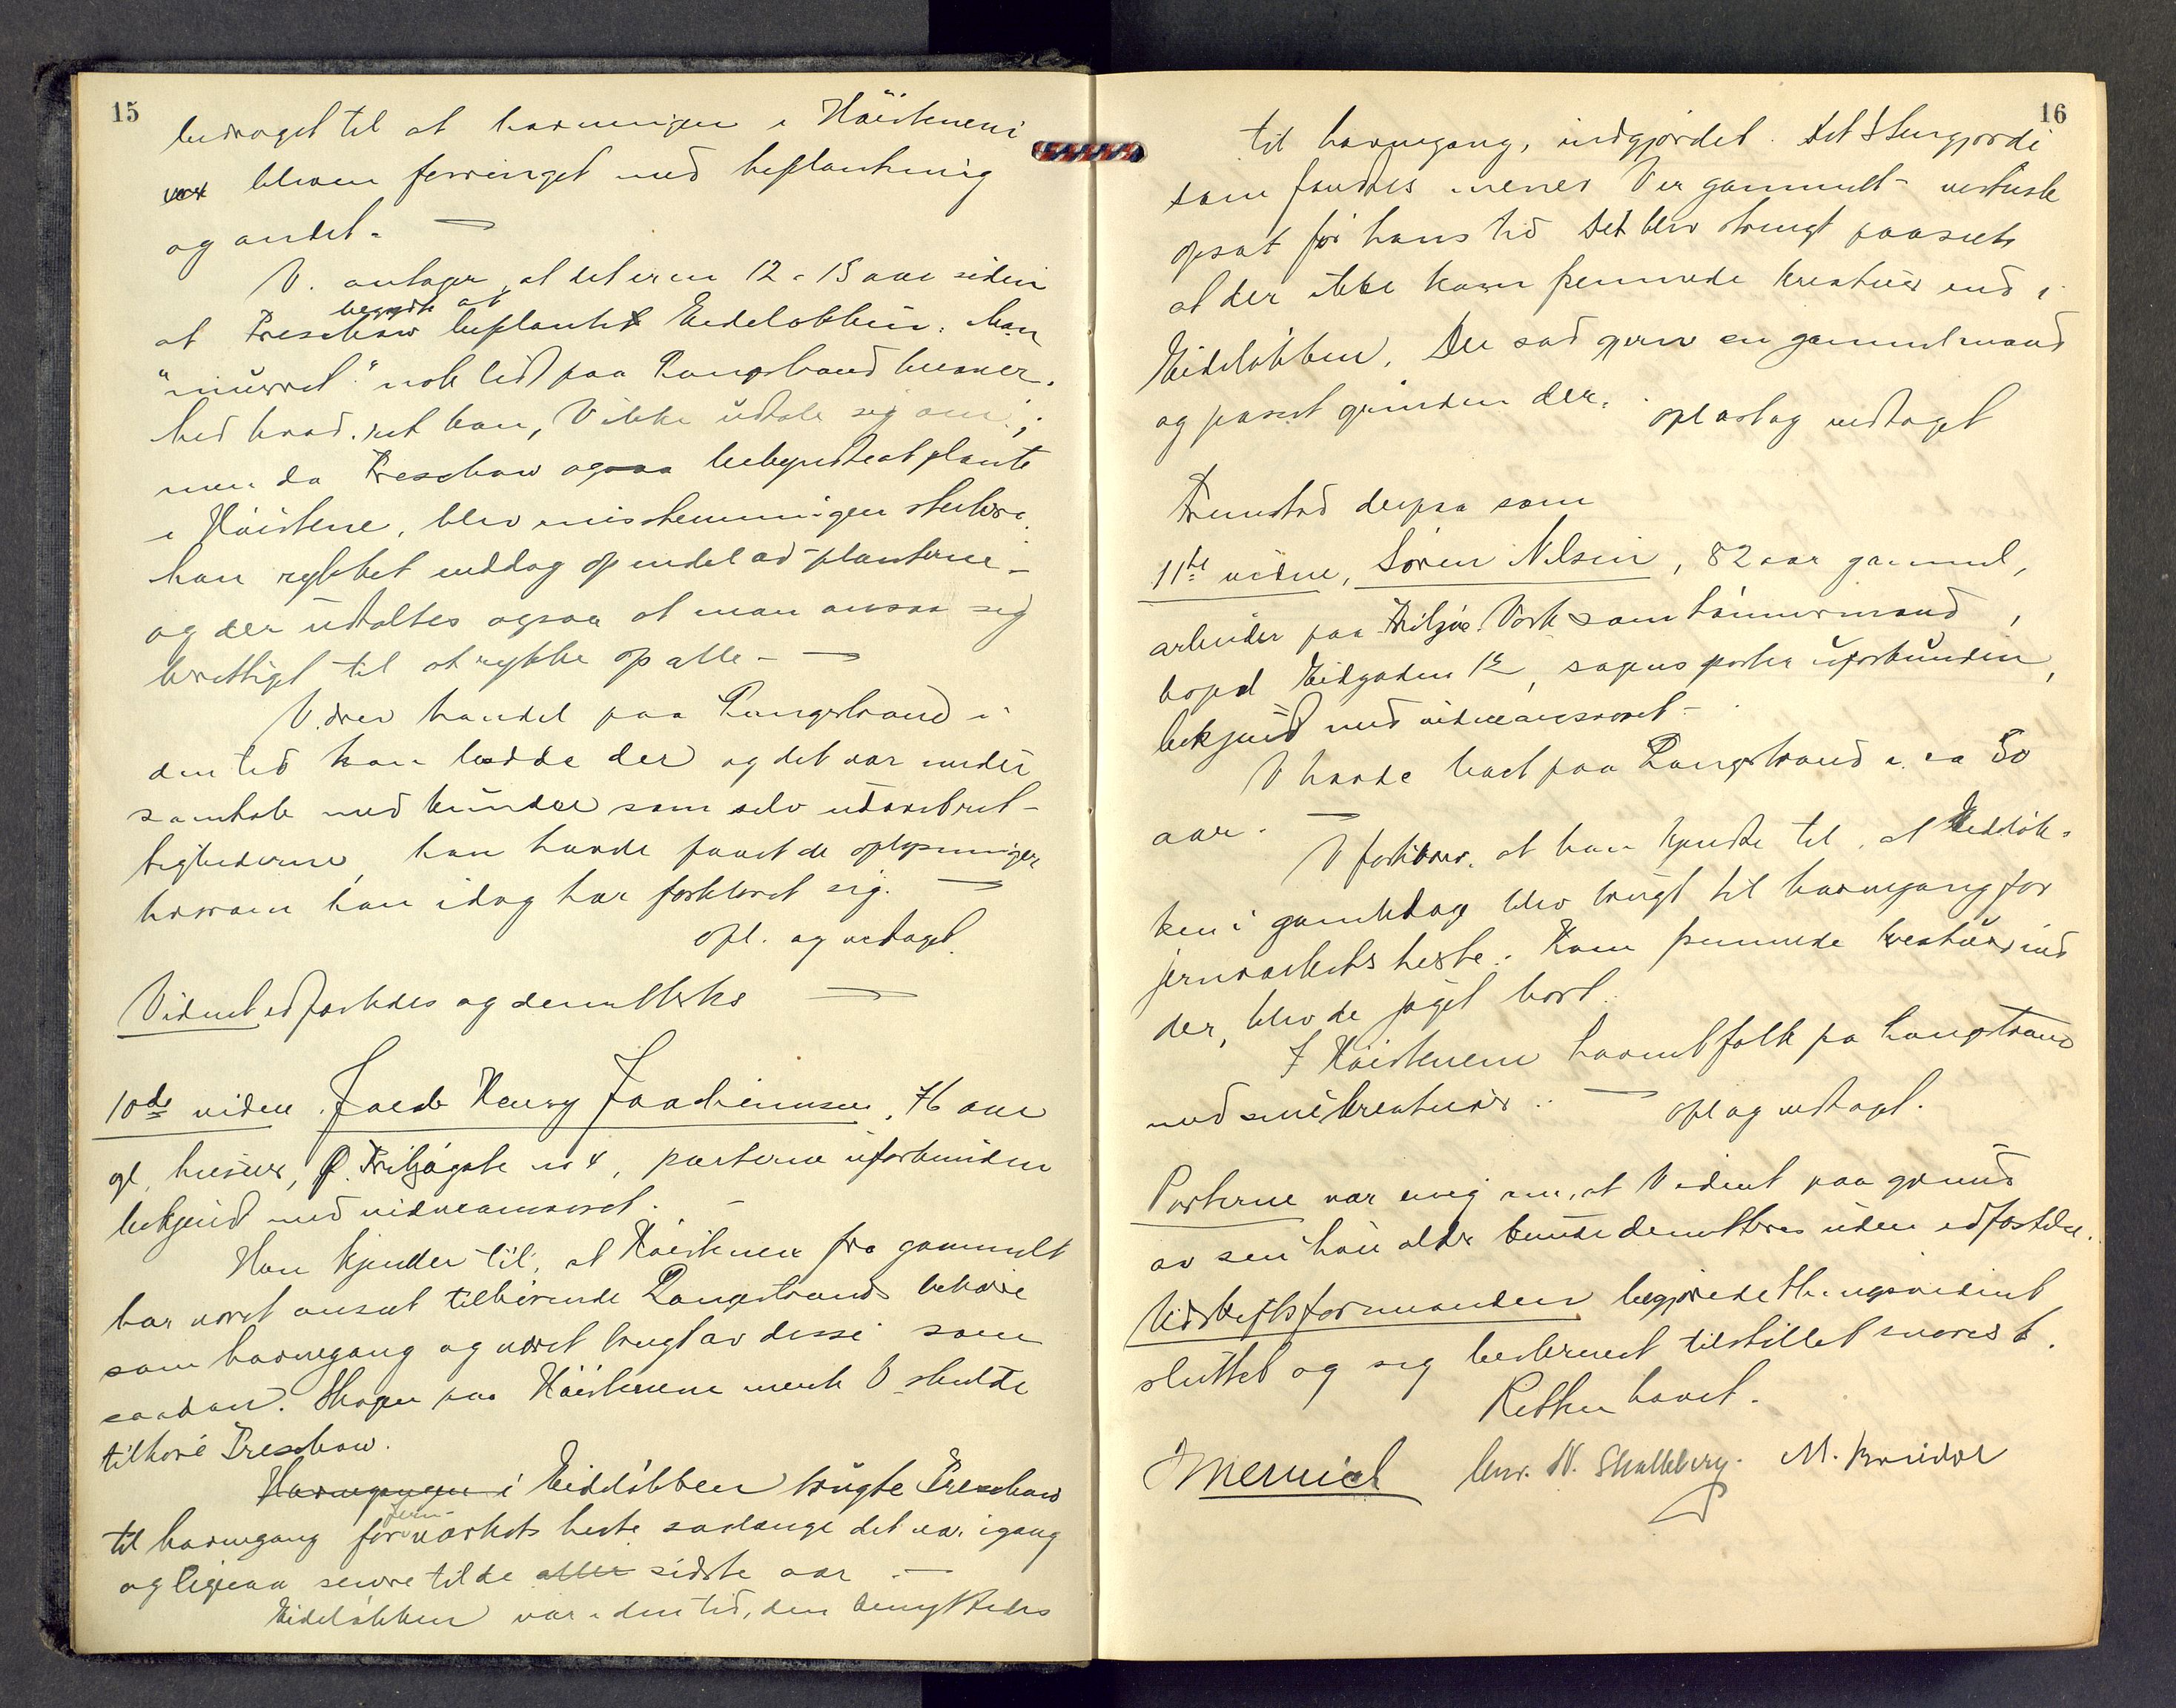 15
bidraget til at havningen i Høistenene
bliven forringet med beplantning
og andet.
V. antager, at det er en 12 a 15 aar siden
at Treschow begyndte at beplante Eideløkken. Man
"murret" nok lidt paa Langestrand herover.
hvad ret han, V ikke udtale sig om;
men da Treschow ogsaa bebegyndte at plante
i Høistene, blev misstemningen sterkere
han rykket enddog op endel av planterne
og der udtaltes ogsaa at man ansaa sig
berettiget til at rykke op alle.
V. drev handel paa Langestrand i
den tid han bodde der og det var under
samtale med kunder som selv
han havde faaet de oplysninger
hvorom han idag har forklaret sig.
Opl. og vedtaget.
Vidnet edfæstedes og demitteres
10de vidne Jacob Henry Joachimsen, 76 aar
gl. huseier, Ø. Fritzøgate no 4, parterne uforbunden
bekjend med vidneansvaret.
Han kjender til, at Høistenene fra gammelt
har været anseet tilhørende Langestrands beboere
som havnegang og været brugt av disse som
saadan. Skogen paa Høistenene mente V skulde
tilhøre Treschow.
Havnegangen i Eideløkken brugte Treschow
til havnegang for jernværkets heste saalænge det var igang
og ligesaa senere til de aller sidste aar.
Eideløkken var i den tid, den benyttedes
16
til havnegang, indgjærdet. Det Stengjærde
som fandtes mener V er gammelt
opsat før hans tid Det blev strengt paaseet
at der ikke kom fremmede kreaturer ind i
Eideløkken. Der sad gjerne en gammel mand
og passet grinden der.
opl og vedtaget
Fremstod derpaa som
11te vidne, Søren Nilsen, 82 aar gammel,
arbeider paa Fritzøe Værk som tømmermand,
bopæl Eidgaden 12, sagens parter uforbunden,
bekjend med vidneansvaret.
V havde boet paa Langestrand i ca 50
aar.
V forklarer, at han kjendte til, at Eideløk-
ken i gamledage blev brugt til havnegang for
jernværkets heste. Kom fremmede kreaturer ind
der, blev de jaget bort.
I Høistenene havnet folk på Langestrand
med sine kreaturer.
opl og vedtaget.
Parterne var enig om, at Vidnet paa grund
av sin høie alder kunde demitteres uden edfæstelse.
Udskiftsformanden begjærede thingsvidnet
sluttet og sig beskrevet tilstillet snarest.
Retten hævet.